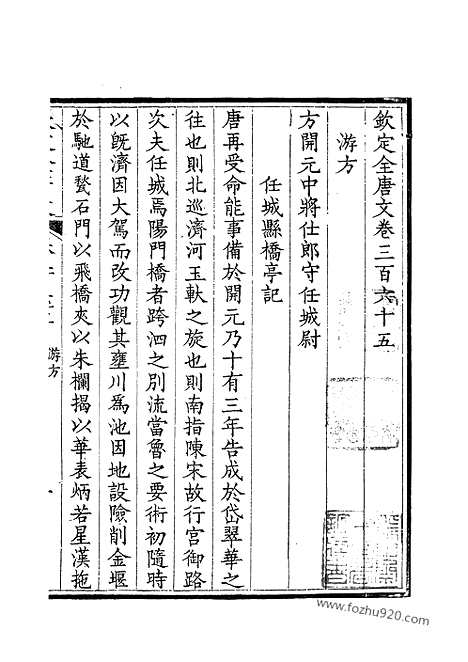 欽定全唐文卷三百六十五
游方
方開元中將仕郎守任城尉
任城縣橋亭記
唐再受命能事備於開元乃十有三年告成於岱翠華之
往也則北巡濟河玉軑之旋也則南指陳宋故行宮御路
次夫任城焉陽門橋者跨泗之別流當魯之要術初隨時
以既濟因大駕而改功觀其壅川爲池因地設險削金堰
於馳道甃石門以飛橋夾以朱欄揭以華表炳若星漢拖
游方
www.fozhu920.com